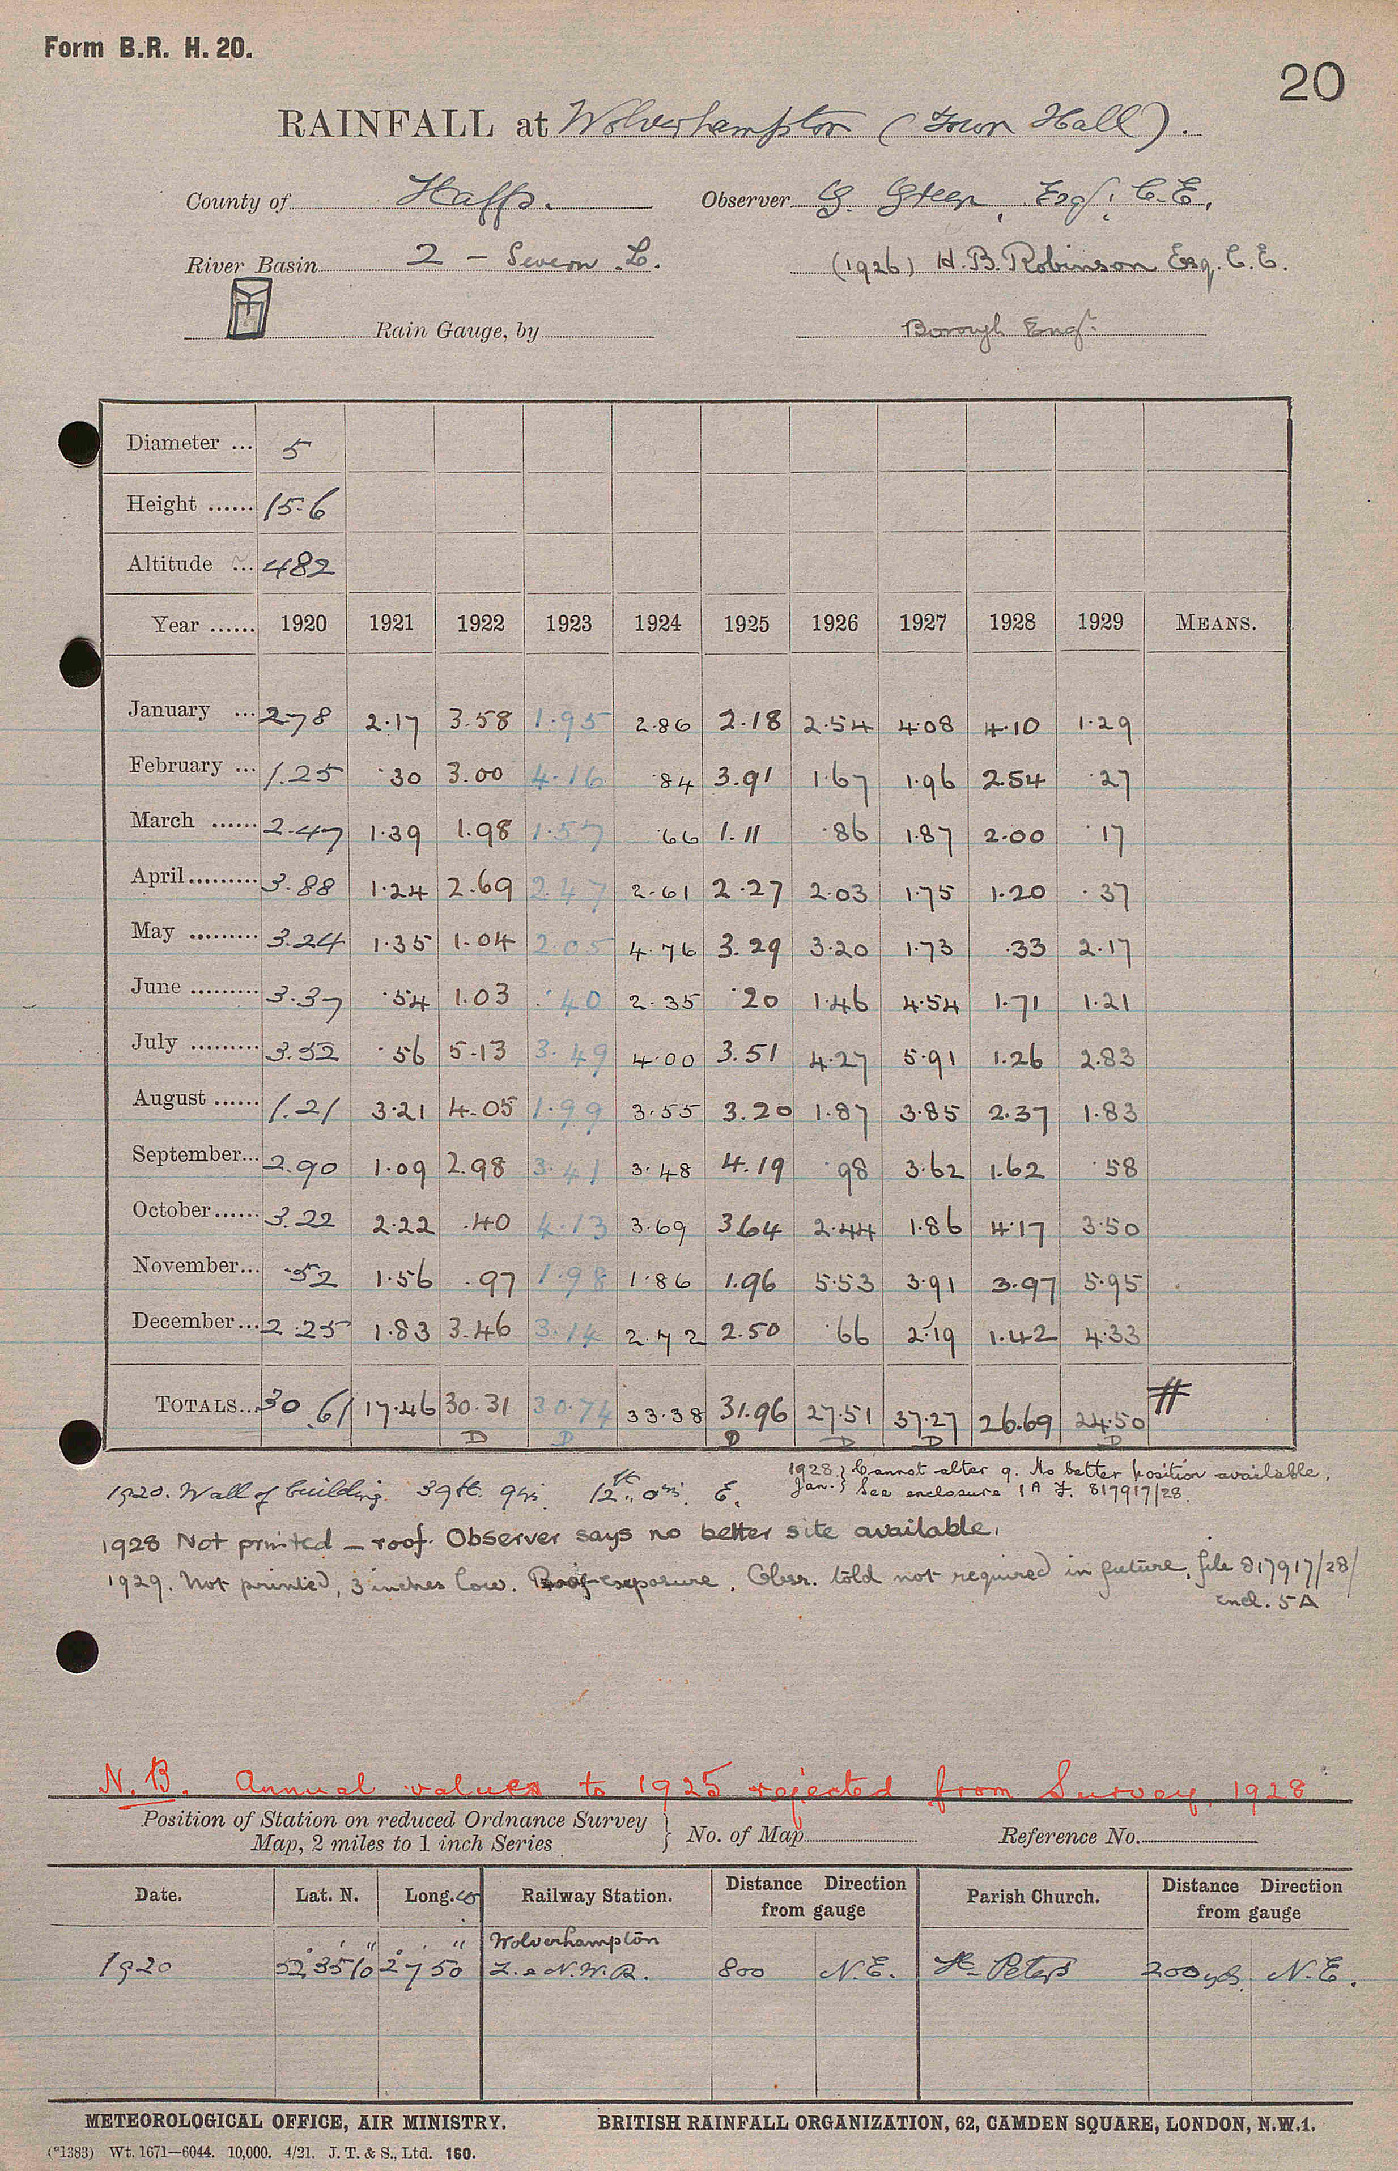 Form B.R. H. 20.
20
RAINFALL at Wolverhampton (Town Hall).
County of Staffs. Observer G. Green, Esq; C.E.
River Basin 2 - Severn. L. (1926) H. B. Robinson Esq. C. E.
Rain Gauge, by Borough Engr.
Diameter ... 5
Height ...... 15-6
Altitude ... 482
Year ...... 1920 1921 1922 1923 1924 1925 1926 1927 1928 1929 MEANS.
January ... 2.78 2.17 3.58 1.95 2.86 2.18 2.54 4.08 4.10 1.29
February ... 1.25 .30 3.00 4.16 .84 3.91 1.67 1.96 2.54 .27
March ...... 2.47 1.39 1.98 1.57 .66 1.11 .86 1.87 2.00 .17
April ......... 3.88 1.24 2.69 2.47 2.61 2.27 2.03 1.75 1.20 .37
May ......... 3.24 1.35 1.04 2.05 4.76 3.29 3.20 1.73 .33 2.17
June ......... 3.37 .54 1.03 .40 2.35 .20 1.46 4.54 1.71 1.21
July ......... 3.52 .56 5.13 3.49 4.00 3.51 4.27 5.91 1.26 2.83
August ...... 1.21 3.21 4.05 1.99 3.55 3.20 1.87 3.85 2.37 1.83
September... 2.90 1.09 2.98 3.41 3.48 4.19 .98 3.62 1.62 .58
October ...... 3.22 2.22 .40 4.13 3.69 3.64 2.44 1.86 4.17 3.50
November... .52 1.56 .97 1.98 1.86 1.96 5.53 3.91 3.97 5.95
December... 2.25 1.83 3.46 3.14 2.72 2.50 .66 2.19 1.42 4.33
TOTALS... 30.61 17.46 30.31 30.74 33.38 31.96 27.51 37.27 26.69 24.50 #
D D D D D D
1928 } Cannot alter g. No better position available,
Jan. } See enclosure 1A F. 817917/28.
1920. Wall of building. 39ft. 9in. 12th. E.
1928 Not printed - roof. Observer says no better site available.
1929. Not printed, 3 inches low. Roof exposure. Obsr. told not required in future, file 817917/28/
encl. 5A
N.B. Annual values to 1925 rejected from Survey, 1928
Position of Station on reduced Ordnance Survey
Map, 2 miles to 1 inch Series } No. of Map Reference No.
Date. Lat. N. Long. W Railway Station. Distance Direction from gauge Parish Church. Distance Direction from gauge
1920 52° 35' 10" 2° 7' 50" Wolverhampton L. & N.W.R. 800 N.E. St. Peters 200 yds. N.E.
METEOROLOGICAL OFFICE, AIR MINISTRY. BRITISH RAINFALL ORGANIZATION, 62, CAMDEN SQUARE, LONDON, N.W.1.
(*1383) Wt. 1671—6044. 10,000. 4/21. J. T. & S., Ltd. 160.